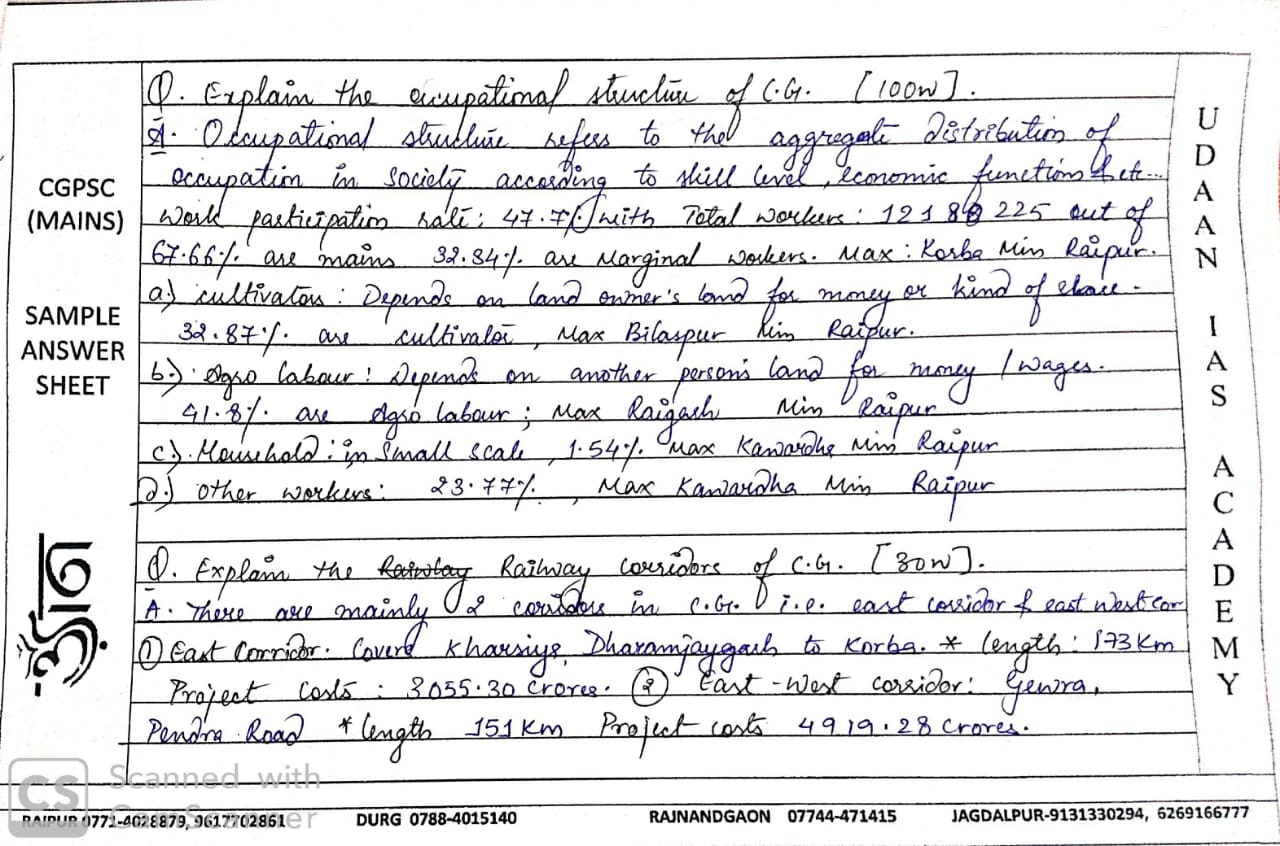 CGPSC
(MAINS)
SAMPLE
ANSWER
SHEET
उड़ान
Q. Explain the occupational structure of C.G. [100w].
A. Occupational structure refers to the aggregate distribution of
occupation in society according to skill level, economic functions & etc...
Work participation rate: 47.7% with Total workers: 12180225 out of
67.66%. are mains 32.34%. are Marginal workers. Max: Korba Min Raipur.
a.) cultivators: Depends on land owner's land for money or kind of share.
32.87%. are cultivator, Max Bilaspur Min Raipur.
b.) Agro labour: Depends on another person's land for money / wages.
41.8%. are Agro labour; Max Raigarh Min Raipur
c.) Household: in Small scale, 1.54%. Max Kawardha Min Raipur
d.) other workers: 23.77%., Max Kawardha Min Raipur
Q. Explain the Railway Railway corridors of C.G. [30w].
A. There are mainly 2 corridors in C.G. i.e. east corridor & east west cor
① East Corridor. Covered Kharsiya, Dharamjaygarh to Korba. * length: 173 Km
Project Costs: 3055.30 Crores. ② East-West corridor: Gewra,
Pendra Road * length 151 Km Project costs 4919.28 Crores.
UDAAN IAS ACADEMY
CS Scanned with
CamScanner
RAIPUR 0771-4028879, 9617702861 DURG 0788-4015140 RAJNANDGAON 07744-471415 JAGDALPUR-9131330294, 6269166777